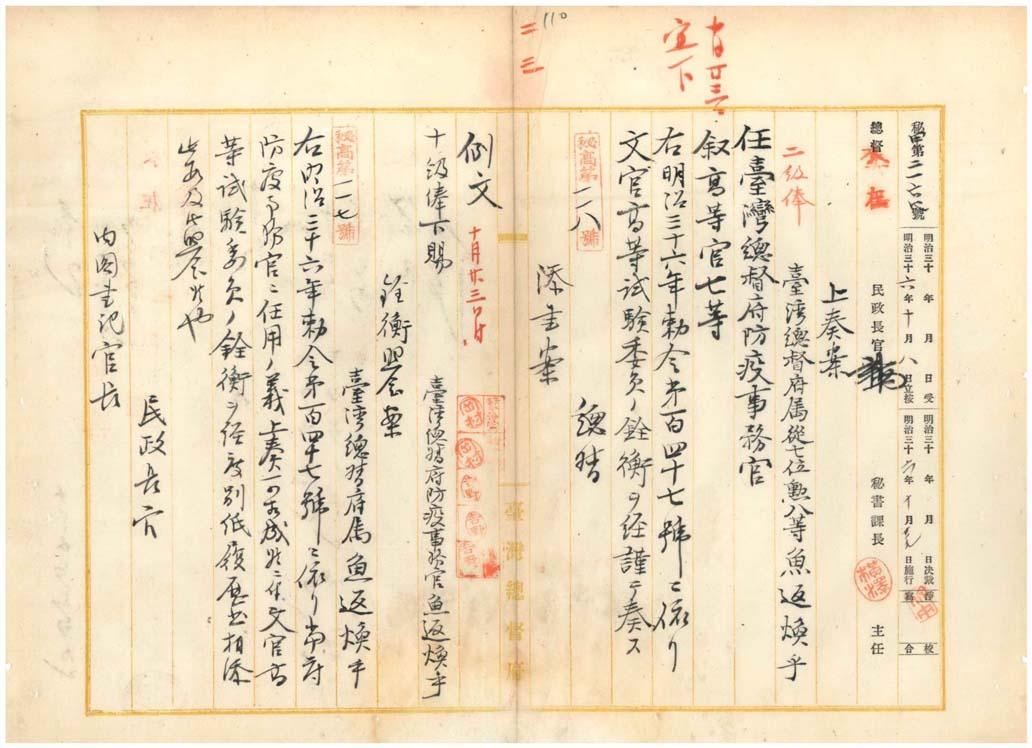 110
十月廿三日
宣下
二三
秘甲第二一六號
明治三十 年 月 日受
明治三十六年十月八日立按
明治三十 年 月 日決裁
明治三十六年十月 日施行
校合
總督
民政長官
秘書課長
主任
上奏案
二級俸
臺灣總督府属從七位勲八等魚返煥乎
任臺灣總督府防疫事務官
叙高等官七等
右明治三十六年勅令第百四十七號ニ依リ
文官高等試験委員ノ銓衡ヲ経謹テ奏ス
總督
秘高第一一八號
添書案
臺灣總督府
例文
十月廿三日付
臺湾總督府防疫事務官魚返煥乎
十級俸下賜
銓衡照会案
秘高第一一七號
臺湾總督府属魚返煥乎
右明治三十六年勅令第百四十七號ニ依リ當府
防疫事務官ニ任用ノ義上奏可相成候ニ付文官高
等試験委員ノ銓衡ヲ経度別紙履歴書相添
此段及御照会候也
民政長官
内閣書記官長